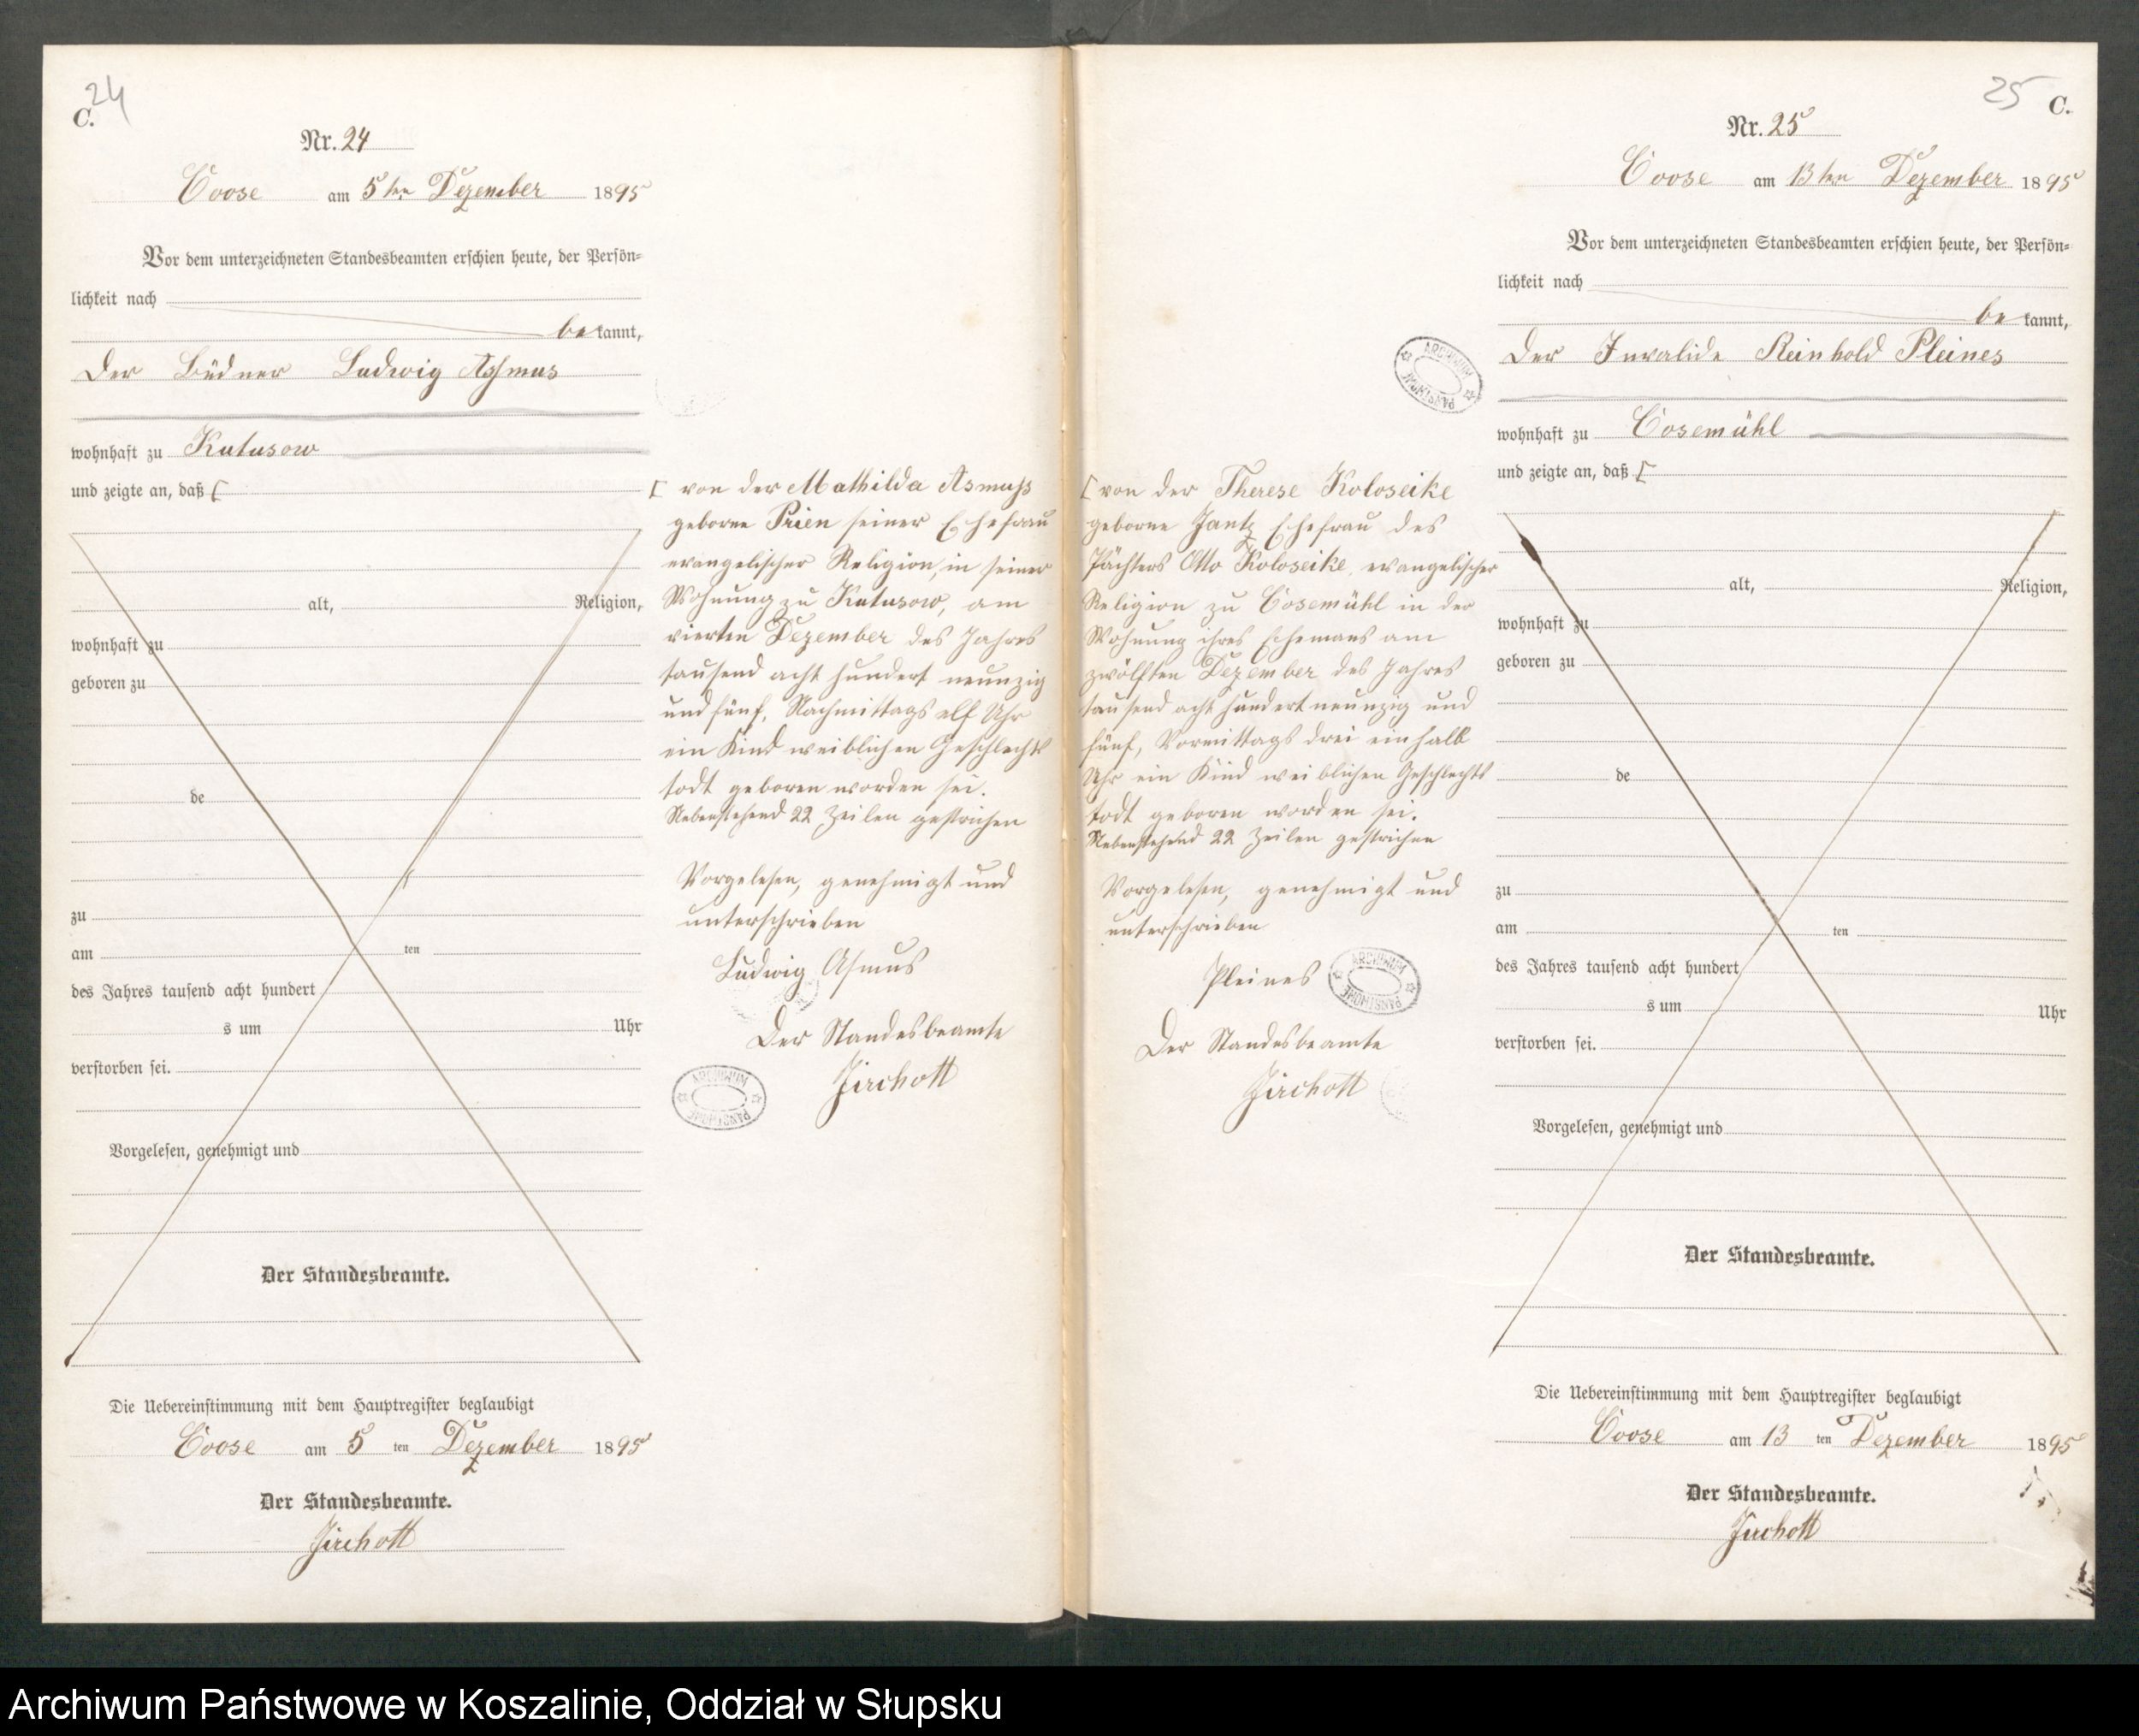 24
C.
Nr. 24
Coose am 5ten Dezember 1895
Vor dem unterzeichneten Standesbeamten erschien heute, der Persön-
lichkeit nach
bekannt,
der Büdner Ludwig Aßmus
wohnhaft zu Kutusow
und zeigte an, daß [
alt, Religion,
wohnhaft zu
geboren zu
de
zu
am ten
des Jahres tausend acht hundert
s um Uhr
verstorben sei.
Vorgelesen, genehmigt und
Der Standesbeamte.
Die Uebereinstimmung mit dem Hauptregister beglaubigt
Coose am 5 ten Dezember 1895
Der Standesbeamte.
Jirchott
[ von der Mathilda Asmuss
geborne Prien seiner Ehefrau
evangelischer Religion, in seiner
Wohnung zu Kutusow, am
vierten Dezember des Jahres
tausend acht hundert neunzig
und fünf, Nachmittags elf Uhr
ein Kind weiblichen Geschlechts
todt geboren worden sei.
Nebenstehend 22 Zeilen gestrichen
Vorgelesen, genehmigt und
unterschrieben
Ludwig Asmus
Der Standesbeamte
Jirchott
ARCHIWUM PAŃSTWOWE
25
C.
Nr. 25
Coose am 13ten Dezember 1895
Vor dem unterzeichneten Standesbeamten erschien heute, der Persön-
lichkeit nach
bekannt,
der Invalide Reinhold Pleines
wohnhaft zu Cosemühl
und zeigte an, daß [
alt, Religion,
wohnhaft zu
geboren zu
de
zu
am ten
des Jahres tausend acht hundert
s um Uhr
verstorben sei.
Vorgelesen, genehmigt und
Der Standesbeamte.
Die Uebereinstimmung mit dem Hauptregister beglaubigt
Coose am 13 ten Dezember 1895
Der Standesbeamte.
Jirchott
[ von der Therese Koloseike
geborne Jantz Ehefrau des
Pächters Otto Koloseike, evangelischer
Religion zu Cosemühl in der
Wohnung ihres Ehemans am
zwölften Dezember des Jahres
tausend acht hundert neunzig und
fünf, Vormittags drei einhalb
Uhr ein Kind weiblichen Geschlechts
todt geboren worden sei.
Nebenstehend 22 Zeilen gestrichen
Vorgelesen, genehmigt und
unterschrieben
Pleines
Der Standesbeamte
Jirchott
ARCHIWUM PAŃSTWOWE
ARCHIWUM PAŃSTWOWE
Archiwum Państwowe w Koszalinie, Oddział w Słupsku